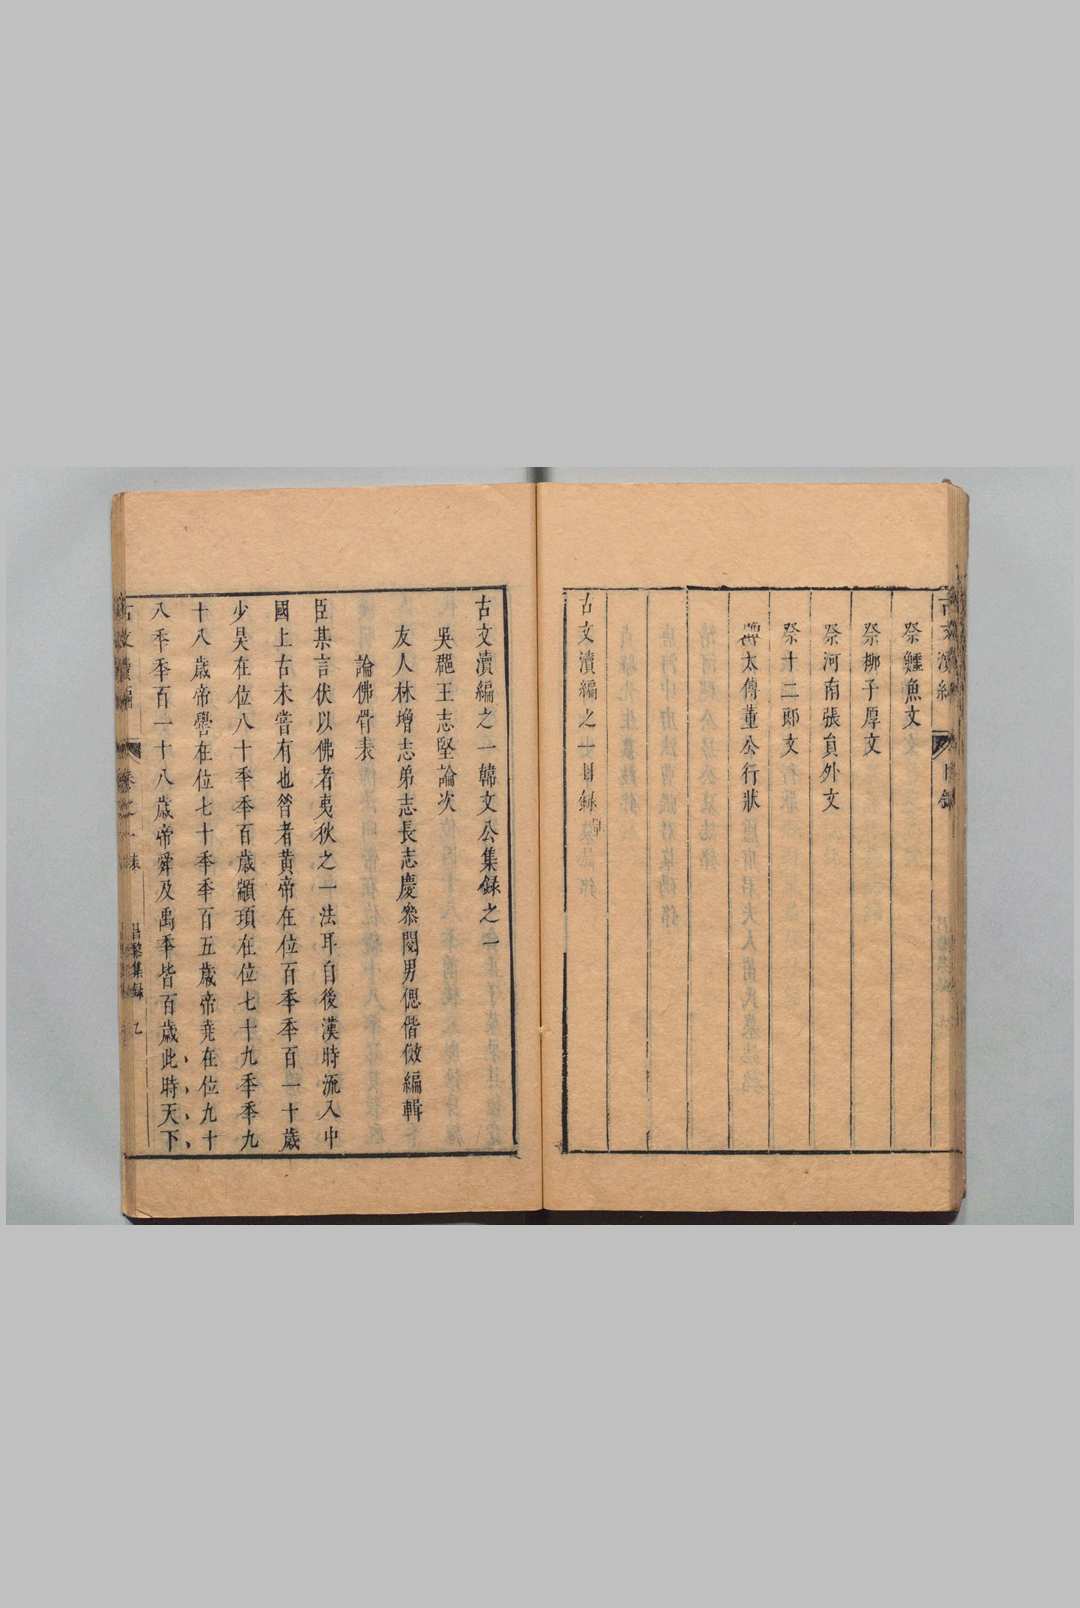 祭鱷魚文
祭柳子厚文
祭河南張員外文
祭十二郎文
贈太傅董公行狀
古文瀆編之一目錄
古文瀆編之一韓文公集録之一
吳郡王志堅論次
友人林增志弟志長志慶叅閱男偲偕倣編輯
論佛骨表
臣某言伏以佛者夷狄之一法耳自後漢時流入中
國上古未嘗有也昝者黄帝在位百秊秊百一十歲
少昊在位八十秊秊百歲顓頊在位七十九秊秊九
十八歲帝嚳在位七十秊秊百五歲帝堯在位九十
八秊秊百一十八歲帝舜及禹秊皆百歲此時天下
古文瀆編 卷之一 表 昌黎集録